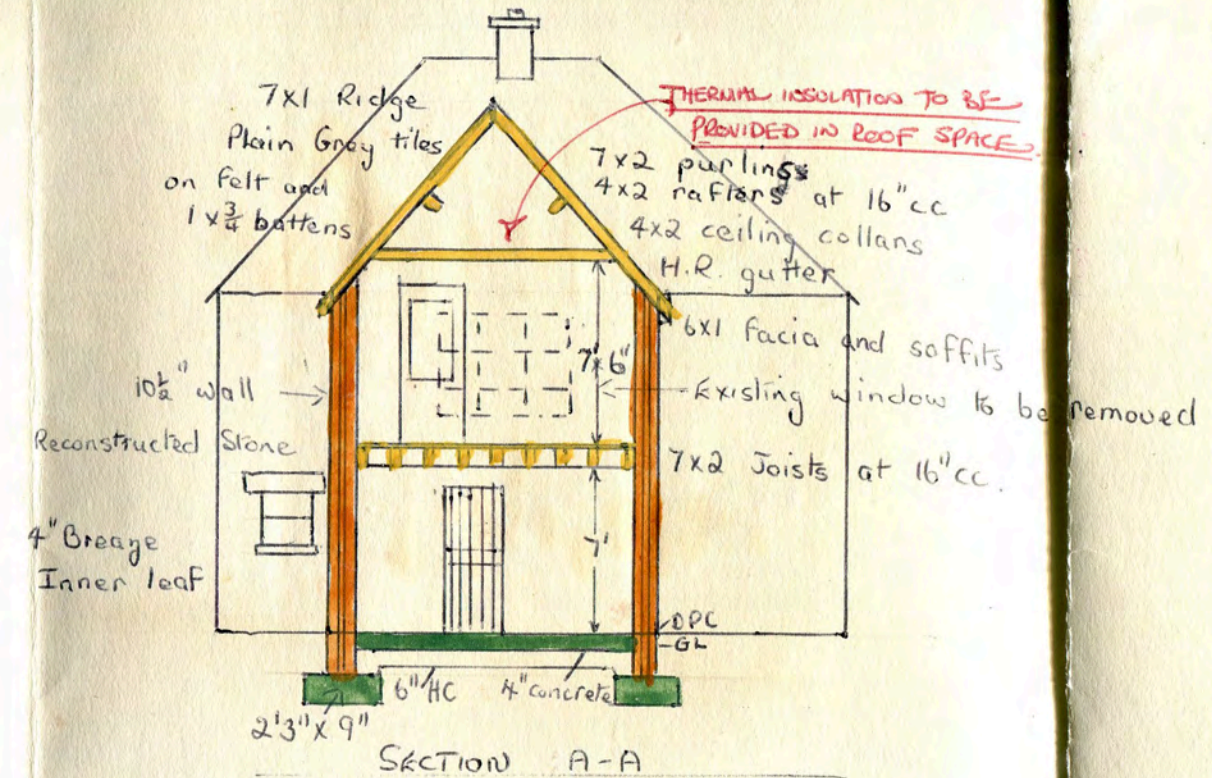 7x1 Ridge
Plain Grey tiles
on felt and
1 x 3/4 battens
THERMAL INSULATION TO BE
PROVIDED IN ROOF SPACE.
7x2 purlings
4x2 rafters at 16"cc
4x2 ceiling collars
H.R. gutter
6x1 facia and soffits
7'x6"
Existing window to be removed
10½" wall
Reconstructed Stone
7x2 Joists at 16"cc.
4" Breaze
Inner leaf
7'
DPC
GL
6" HC
4" concrete
2'3" x 9"
SECTION A-A